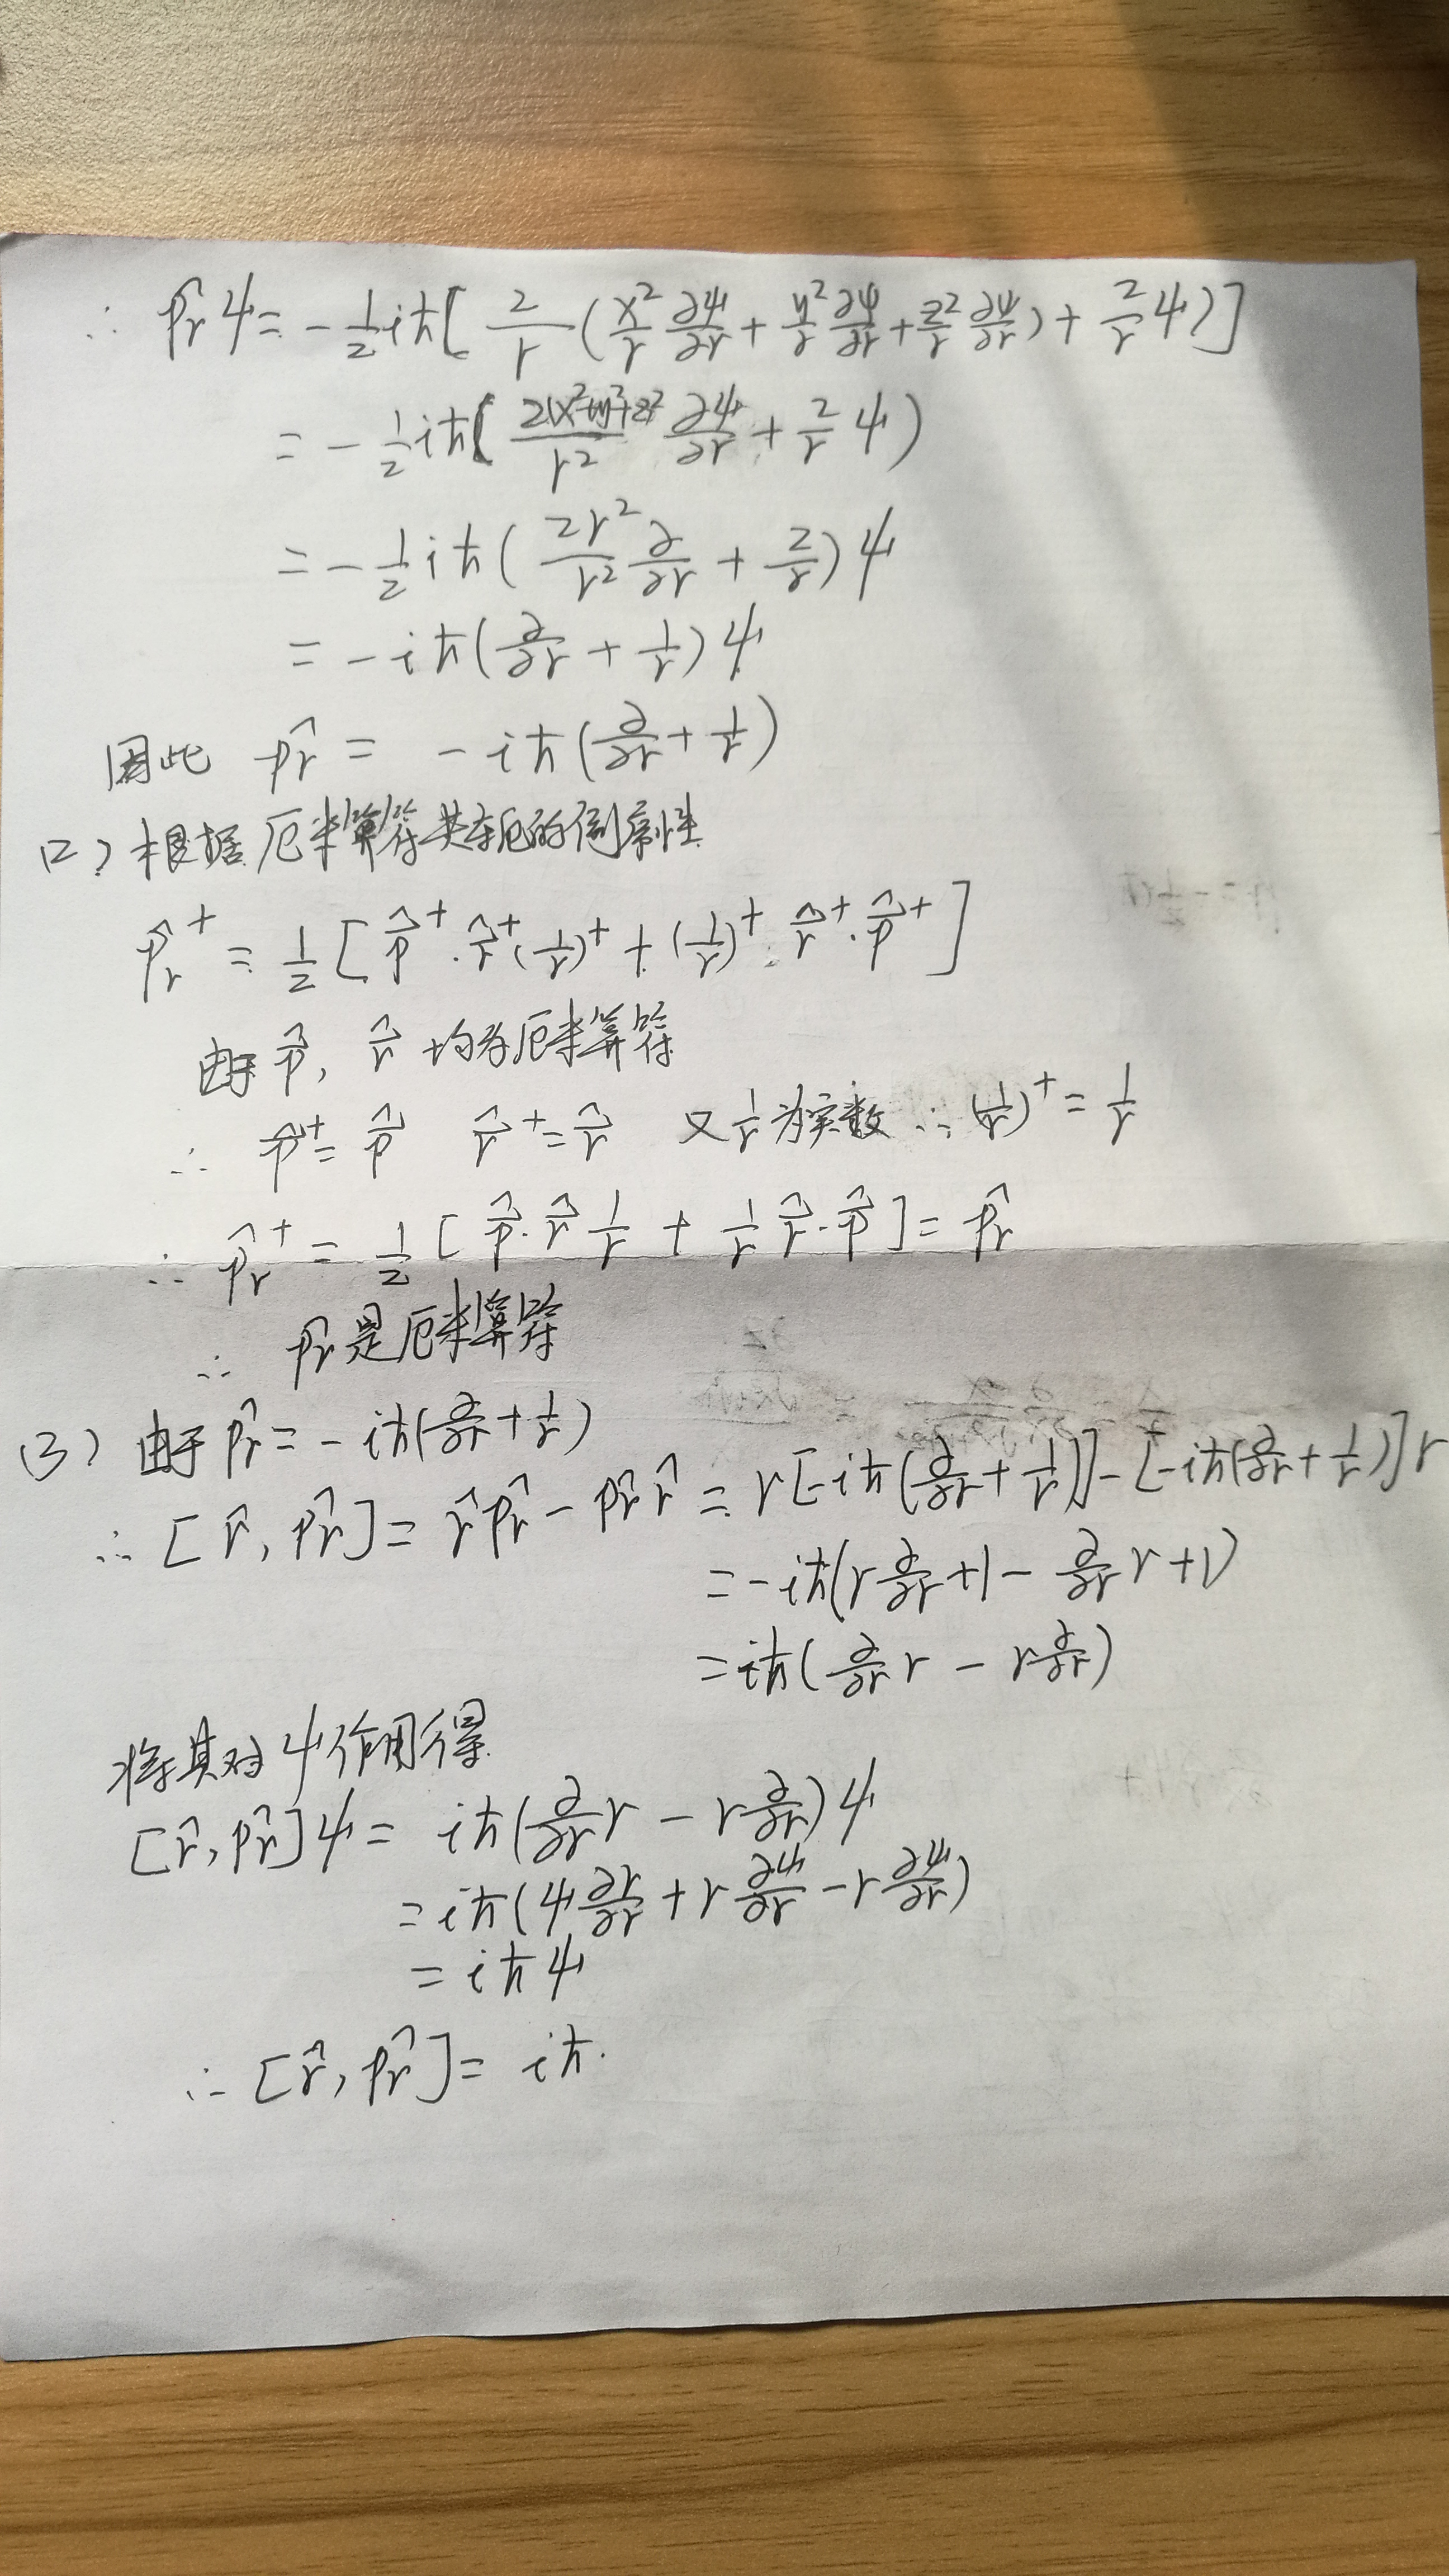 ∴ p̂r ψ = -1/2 iħ[ 2/r (x²/r ∂ψ/∂r + y²/r ∂ψ/∂r + z²/r ∂ψ/∂r) + 2/r ψ)]
= -1/2 iħ( 2(x²+y²+z²/r² ∂ψ/∂r + 2/r ψ)
= -1/2 iħ( 2r²/r² ∂/∂r + 2/r) ψ
= -iħ(∂/∂r + 1/r) ψ
因此 p̂r = -iħ(∂/∂r + 1/r)
(2) 根据厄米算符共轭的倒序性
p̂r⁺ = 1/2 [ p̂⃗⁺ · r̂⃗⁺ (1/r)⁺ + (1/r)⁺ · r̂⃗⁺ · p̂⃗⁺ ]
由于 p̂⃗, r̂⃗ 均为厄米算符
∴ p⃗⁺ = p̂⃗ r̂⃗⁺ = r̂⃗ 又 1/r 为实数 ∴ (1/r)⁺ = 1/r
∴ p̂r⁺ = 1/2 [ p̂⃗ · r̂⃗ 1/r + 1/r r̂⃗ · p̂⃗ ] = p̂r
∴ p̂r 是厄米算符
(3) 由于 p̂r = -iħ(∂/∂r + 1/r)
∴ [r̂, p̂r] = r̂p̂r - p̂r r̂ = r[-iħ(∂/∂r + 1/r)] - [-iħ(∂/∂r + 1/r)]r
= -iħ(r ∂/∂r + 1 - ∂/∂r r + 1)
= iħ(∂/∂r r - r ∂/∂r)
将其对 ψ 作用得
[r̂, p̂r]ψ = iħ(∂/∂r r - r ∂/∂r)ψ
= iħ(ψ ∂r/∂r + r ∂ψ/∂r - r ∂ψ/∂r)
= iħψ
∴ [r̂, p̂r] = iħ.